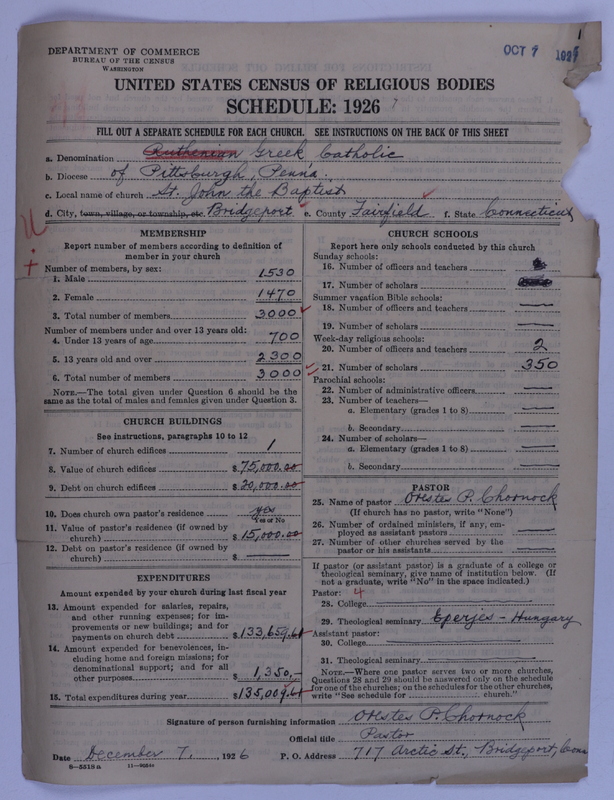 DEPARTMENT OF COMMERCE
BUREAU OF THE CENSUS
WASHINGTON
OCT 9 192
UNITED STATES CENSUS OF RELIGIOUS BODIES
SCHEDULE: 1926
FILL OUT A SEPARATE SCHEDULE FOR EACH CHURCH. SEE INSTRUCTIONS ON THE BACK OF THIS SHEET
a. Denomination Ruthenian Greek Catholic
b. Diocese of Pittsburgh, Penna.
c. Local name of church St. John the Baptist
d. City, town, village, or township, etc. Bridgeport e. County Fairfield f. State Connecticut
MEMBERSHIP
Report number of members according to definition of
member in your church
Number of members, by sex:
1. Male 1530
2. Female 1470
3. Total number of members 3000
Number of members under and over 13 years old:
4. Under 13 years of age 700
5. 13 years old and over 2300
6. Total number of members 3000
NOTE.—The total given under Question 6 should be the
same as the total of males and females given under Question 3.
CHURCH BUILDINGS
See instructions, paragraphs 10 to 12
7. Number of church edifices 1
8. Value of church edifices $75,000.00
9. Debt on church edifices $20,000.00
10. Does church own pastor's residence yes
Yes or No
11. Value of pastor's residence (if owned by
church) $15,000.00
12. Debt on pastor's residence (if owned by
church) $ —
EXPENDITURES
Amount expended by your church during last fiscal year
13. Amount expended for salaries, repairs,
and other running expenses; for im-
provements or new buildings; and for
payments on church debt $133,659.61
14. Amount expended for benevolences, in-
cluding home and foreign missions; for
denominational support; and for all
other purposes $1,350.-
15. Total expenditures during year $135,009.61
CHURCH SCHOOLS
Report here only schools conducted by this church
Sunday schools:
16. Number of officers and teachers
17. Number of scholars
Summer vacation Bible schools:
18. Number of officers and teachers —
19. Number of scholars —
Week-day religious schools:
20. Number of officers and teachers 2
21. Number of scholars 350
Parochial schools:
22. Number of administrative officers —
23. Number of teachers—
a. Elementary (grades 1 to 8) —
b. Secondary —
24. Number of scholars—
a. Elementary (grades 1 to 8) —
b. Secondary —
PASTOR
25. Name of pastor Orestes P. Chornock
(If church has no pastor, write "None")
26. Number of ordained ministers, if any, em-
ployed as assistant pastors —
27. Number of other churches served by the
pastor or his assistants —
If pastor (or assistant pastor) is a graduate of a college or
theological seminary, give name of institution below. (If
not a graduate, write "No" in the space indicated.)
Pastor: 4
28. College —
29. Theological seminary Eperjes - Hungary
Assistant pastor:
30. College —
31. Theological seminary —
NOTE.—Where one pastor serves two or more churches,
Questions 28 and 29 should be answered only on the schedule
for one of the churches; on the schedules for the other churches,
write "See schedule for church."
Signature of person furnishing information Orestes P. Chornock
Official title Pastor
Date December 7, 1926 P. O. Address 717 Arctic St., Bridgeport, Conn